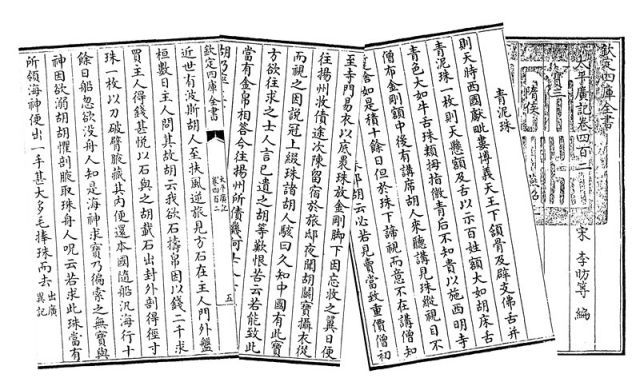 欽定四庫全書
太平廣記卷四百
宋 李昉等 編
寶三
隋侯
青泥珠
則天時西國獻毗婁博義天王下頷骨及辟支佛舌并
青泥珠一枚則天懸額及舌以示百姓額大如胡床舌
青色大如牛舌珠類拇指微青后不知貴以施西明寺
僧布金剛額中後有講席胡人來聽講見珠縱視目不
暫捨如是積十餘日但於珠下諦視而意不在講僧知
耶胡云必若見賣當致重價僧初
至寺門易衣以底裹珠放金剛脚下因忘收之翼日便
往揚州收債途次陳留宿於旅邸夜聞胡鬬寶攝衣從
而視之因說冠上綴珠諸胡大駭曰久知中國有此寶
方欲往求之士人言已遺之胡等歎恨苦云若能致此
當有金帛相答今往揚州所債幾何士人
欽定四庫全書
太平廣記
五
近世有波斯胡人至扶風逆旅見方石在主人門外盤
桓數日主人問其故胡云我欲石擣帛因以錢二千求
買主人得錢甚悦以石與之胡載石出封外剖得徑寸
珠一枚以刀破臂腋藏其内便還本國隨船汎海行十
餘日船忽欲没舟人知是海神求寶乃徧索之無寶與
神因欲溺胡胡懼剖腋取珠舟人呪云若求此珠當有
所領海神便出一手甚大多毛捧珠而去 出廣異記